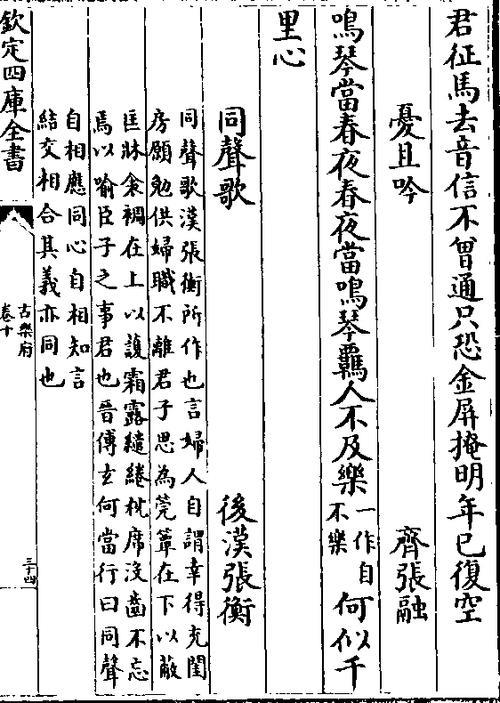 君征馬去音信不曾通只恐金屏掩明年已復空
憂且吟
齊張融
鳴琴當春夜春夜當鳴琴羈人不及樂一作自不樂何似千
里心
同聲歌
後漢張衡
同聲歌漢張衡所作也言婦人自謂幸得充閨
房願勉供婦職不離君子思為莞簟在下以蔽
匡牀衾裯在上以護霜露繾綣枕席没齒不忘
焉以喻臣子之事君也晉傅玄何當行曰同聲
自相應同心自相知言
結交相合其義亦同也
欽定四庫全書
古樂府
卷十
三十四